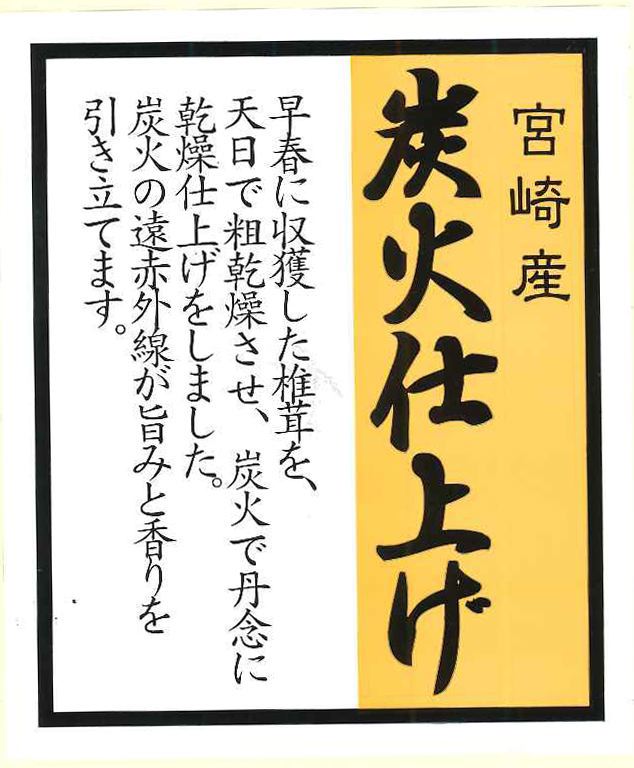 宮崎産
炭火仕上げ
早春に収獲した椎茸を、
天日で粗乾燥させ、炭火で丹念に
乾燥仕上げをしました。
炭火の遠赤外線が旨みと香りを
引き立てます。